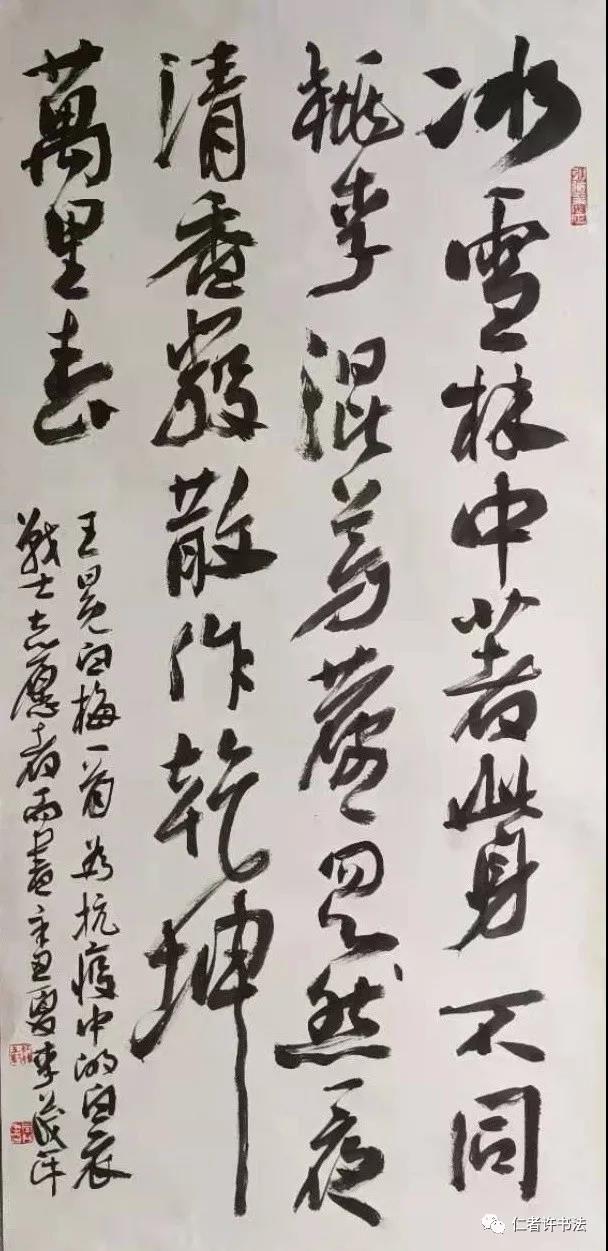 冰雪林中著此身不同
桃李混芳塵忽然一夜
清香發散作乾坤
萬里春
王冕白梅一首为抗疫中的白衣
戰士志愿者而書辛丑夏李
仁者许书法